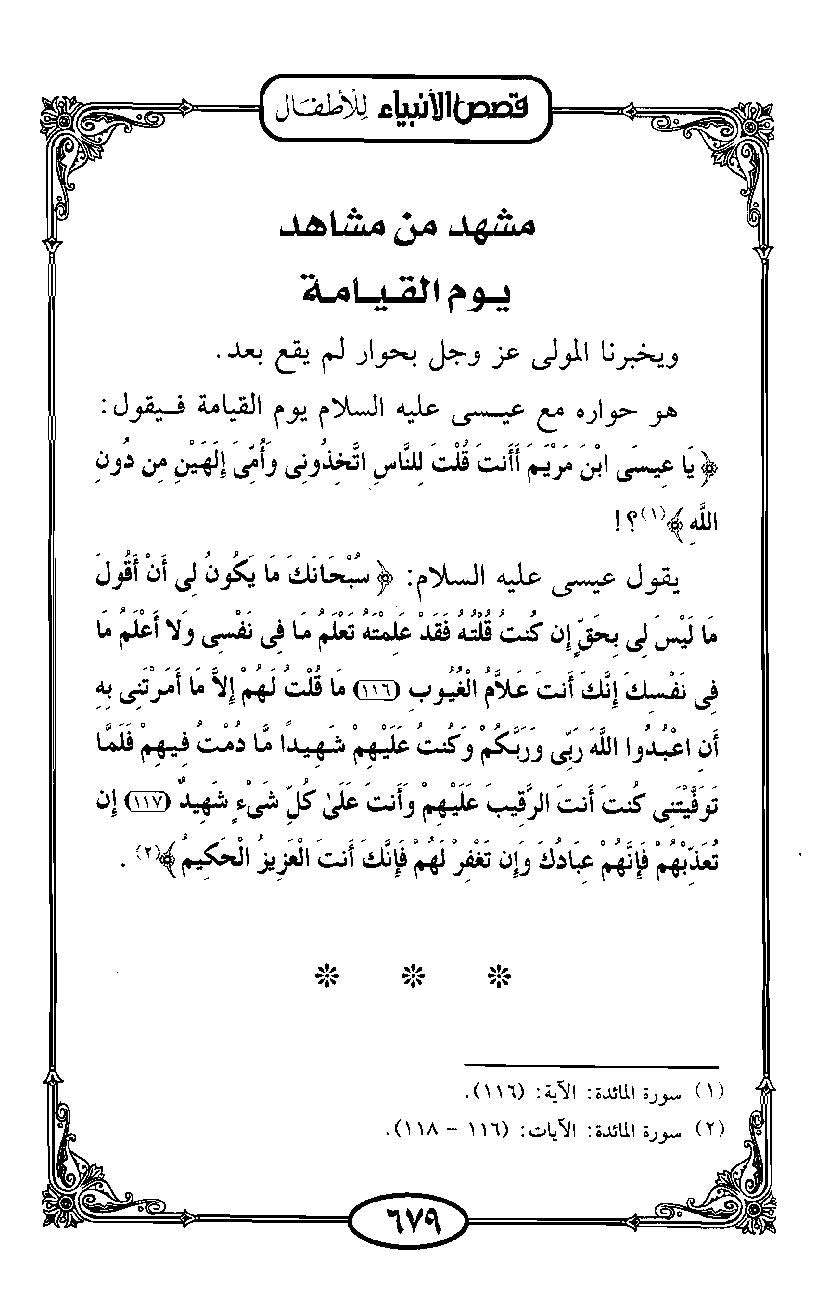 قصص الأنبياء للأطفال
مشهد من مشاهد
يوم القيامة
ويخبرنا المولى عز وجل بحوار لم يقع بعد.
هو حواره مع عيسى عليه السلام يوم القيامة فيقول:
﴿يَا عِيسَى ابْنَ مَرْيَمَ أَأَنتَ قُلْتَ لِلنَّاسِ اتَّخِذُونِى وَأُمِّىَ إِلَهَيْنِ مِن دُونِ
اللَّهِ﴾(١)؟!
يقول عيسى عليه السلام: ﴿سُبْحَانَكَ مَا يَكُونُ لِى أَنْ أَقُولَ
مَا لَيْسَ لِى بِحَقٍّ إِن كُنتُ قُلْتُهُ فَقَدْ عَلِمْتَهُ تَعْلَمُ مَا فِى نَفْسِى وَلا أَعْلَمُ مَا
فِى نَفْسِكَ إِنَّكَ أَنتَ عَلاَّمُ الْغُيُوبِ (١١٦) مَا قُلْتُ لَهُمْ إِلاَّ مَا أَمَرْتَنِى بِهِ
أَنِ اعْبُدُوا اللَّهَ رَبِّى وَرَبَّكُمْ وَكُنتُ عَلَيْهِمْ شَهِيدًا مَّا دُمْتُ فِيهِمْ فَلَمَّا
تَوَفَّيْتَنِى كُنتَ أَنتَ الرَّقِيبَ عَلَيْهِمْ وَأَنتَ عَلَىٰ كُلِّ شَىْءٍ شَهِيدٌ (١١٧) إِن
تُعَذِّبْهُمْ فَإِنَّهُمْ عِبَادُكَ وَإِن تَغْفِرْ لَهُمْ فَإِنَّكَ أَنتَ الْعَزِيزُ الْحَكِيمُ﴾(٢).
(١) سورة المائدة: الآية: (١١٦).
(٢) سورة المائدة: الآيات: (١١٦ - ١١٨).
٦٧٩